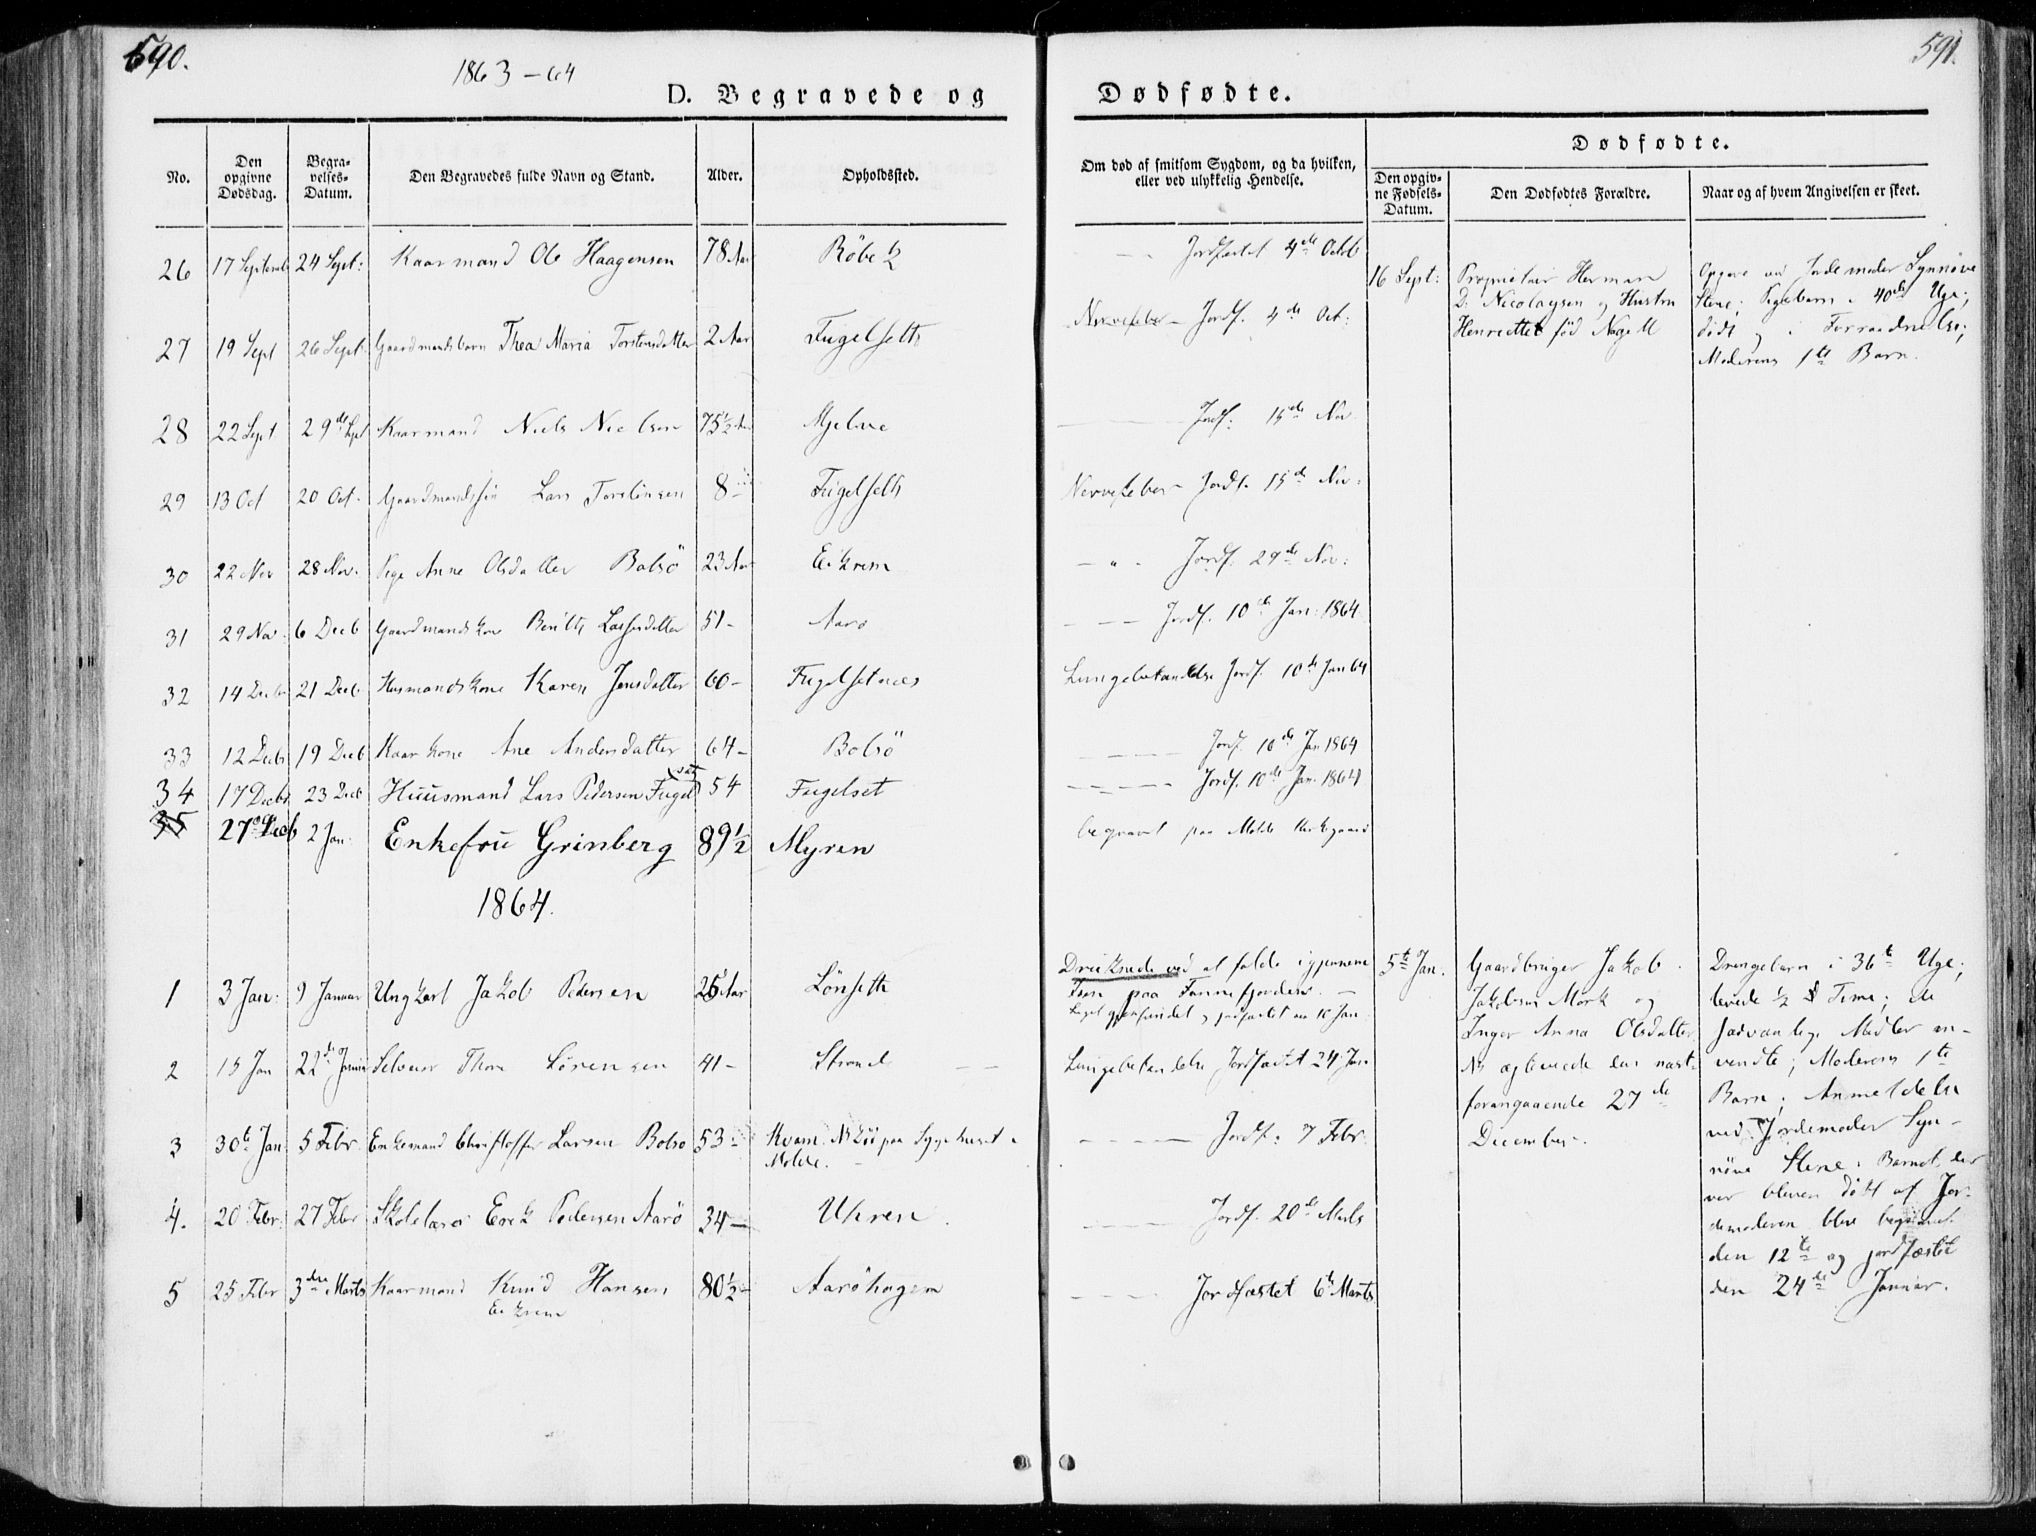 590.
1863-64
D. Begravede og
No.
Den opgivne Dødsdag.
Begravelses-Datum.
Den Begravedes fulde Navn og Stand.
Alder.
Opholdssted.
26 17 Septemb 24 Sept: Kaarmand Ole Haagensen 78 Aar Röbek
27 19 Sept 26 Sept. Gaardmandsbarn Thea Maria Torstensdatter 2 Aar Fugelseth
28 22 Sept 29de Sept Kaarmand Niels Nielsen 75½ Aar Mjelve
29 13 Oct 20 Oct. Gaardmandssön Lars Torstensen 8 Fugelseth
30 22 Nov 28 Nov. Pige Anne Olsdatter Bolsö 23 Aar Eikrem
31 29 Nov. 6 Decb Gaardmandskone Berith Lassesdatter 51- Aarö
32 14 Decb 21 Decb Husmandskone Karen Jensdatter 60- Fugelsetnes
33 12 Decb 19 Decb Kaarkone Ane Andersdatter 64- Bolsö
34 17 Decb 23 Decb Huusmand Lars Pedersen Fugelset 54 Fugelset
35 27de Decb 2 Jan. Enkefru Grinberg 89½ Myren
1864.
1 3 Jan: 9 Januar Ungkarl Jakob Pedersen 26 Aar Lönseth
2 15 Jan 22de Januar Selveier Thore Sörensen 41- Strand
3 30te Jan. 5 Febr. Enkemand Christoffer Larsen Bolsö 53- Kvam. Nb. Lii paa Sygehuset i
Molde.
4. 20 Febr. 27 Febr Skolelærer Erik Pedersen Aarö 34- Uhren.
5 25 Febr 3die Marts Kaarmand Knud Hansen 80½ Aaröhagen
Eikrem
591.
Dødfødte.
Om død af smitsom Sygdom, og da hvilken,
eller ved ulykkelig Hendelse.
Dødfødte.
Den opgivne Fødsels-Datum.
Den Dødfødtes Forældre.
Naar og af hvem Angivelsen er skeet.
Jordfæstet 4de Octob
Nervefeber - Jordf. 4de Oct:
Jordf: 15de Nov.
Nervefeber - Jordf. 15de Nov:
Jordf. 29de Nov:
Jordf. 10de Jan: 1864.
Lungebetændelse Jordf. 10de Jan 64
Jordf. 10de Jan 1864
Jordf. 10de Jan. 1864
begravet paa Molde Kirkegaard
Druknede ved at falde igjennem
Isen paa Fannefjorden. -
Liget gjenfundet og jordfæstet den 10 Jan.
Lungebetændelse Jordfæstet 24 Jan
Jordf: 7 Febr.
Jordf. 20de Marts
Jordfæstet 6te Marts
16 Sept:
Proprietair Herman
D. Nicolaysen og Hustru
Henriette född Nagell
Opgave ved Jordemoder Synnöve
Stene; Pigebarn i 40de Uge;
dödt og i Forraadnelse;
Moderens 1te Barn.
5te Jan.
Gaardbruger Jakob
Jakobsen Mork og
Inger Anna Olsdatter
Nb ægteviede den næst-
forangaaende 27de
December.
Drengebarn i 36te Uge;
levede ½ Time; de
sædvanlige Midler an-
vendte; Moderens 1te
Barn; Anmeldelse
ved Jordemoder Syn-
növe Stene. Barnet der
var bleven döbt af Jor-
demoderen blev begravet
den 12te og jordfæstet
den 24de Januar.